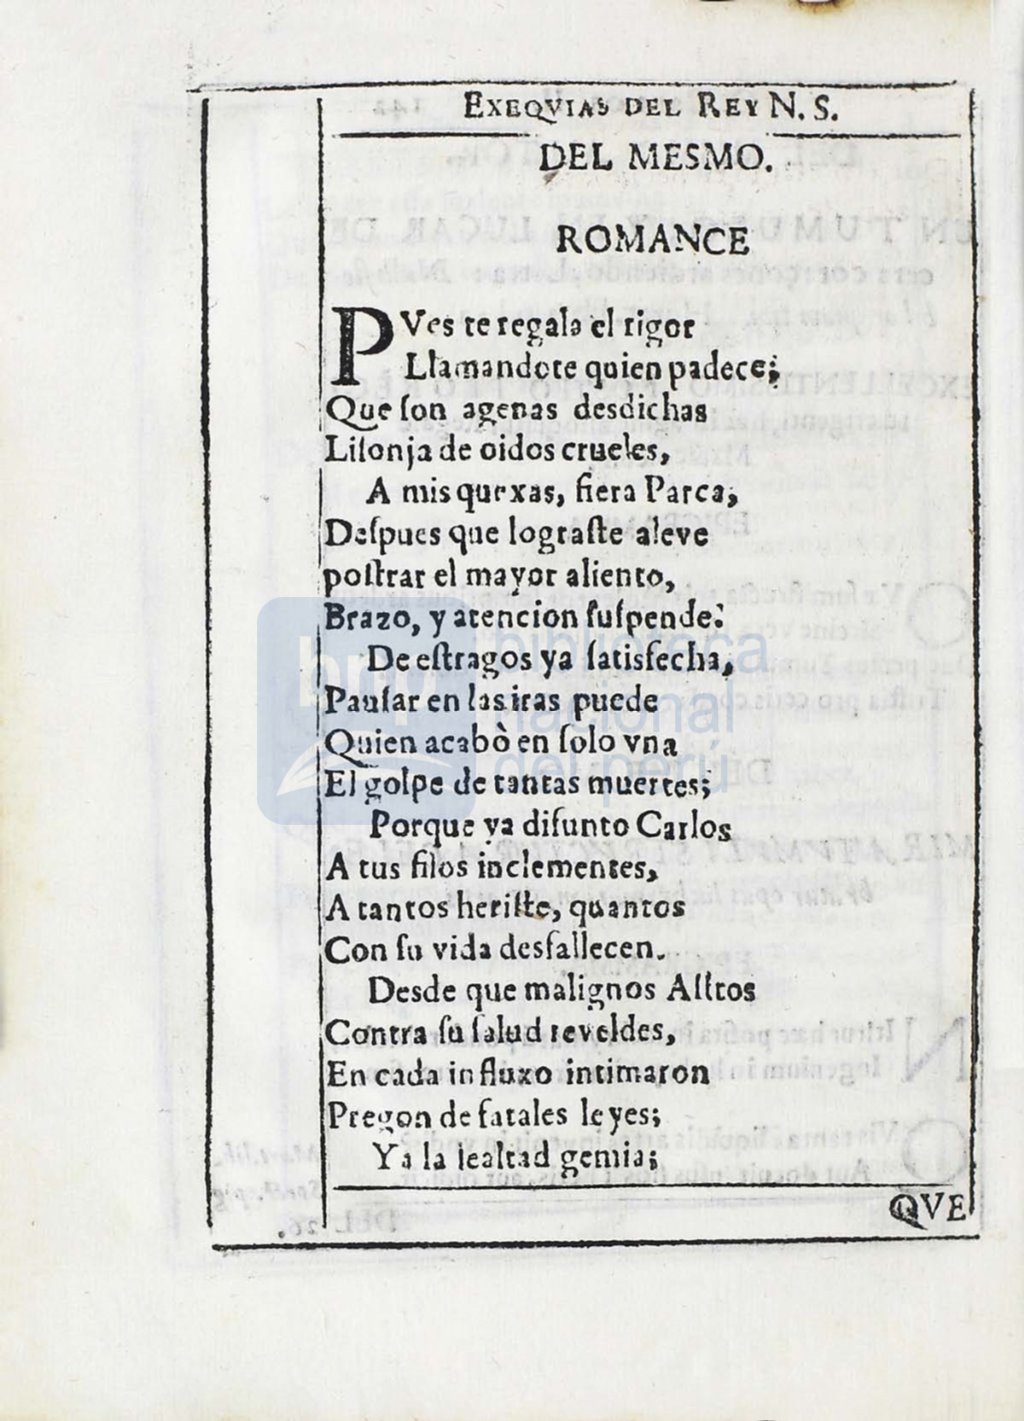 EXEQVIAS DEL REY N. S.
DEL MESMO.
ROMANCE
PVes te regala el rigor
Llamandote quien padece;
Que ſon agenas desdichas
Liſonja de oidos crueles,
A mis quexas, fiera Parca,
Deſpues que lograſte aleve
poſtrar el mayor aliento,
Brazo, y atencion ſuſpende:
De eſtragos ya ſatisfecha,
Pauſar en las iras puede
Quien acabò en ſolo vna
El golpe de tantas muertes;
Porque ya difunto Carlos
A tus filos inclementes,
A tantos heriſte, quantos
Con ſu vida desfallecen.
Desde que malignos Aſtros
Contra ſu ſalud reveldes,
En cada influxo intimaron
Pregon de fatales leyes;
Ya la lealtad gemia;
QVE
biblioteca
nacional
del perú